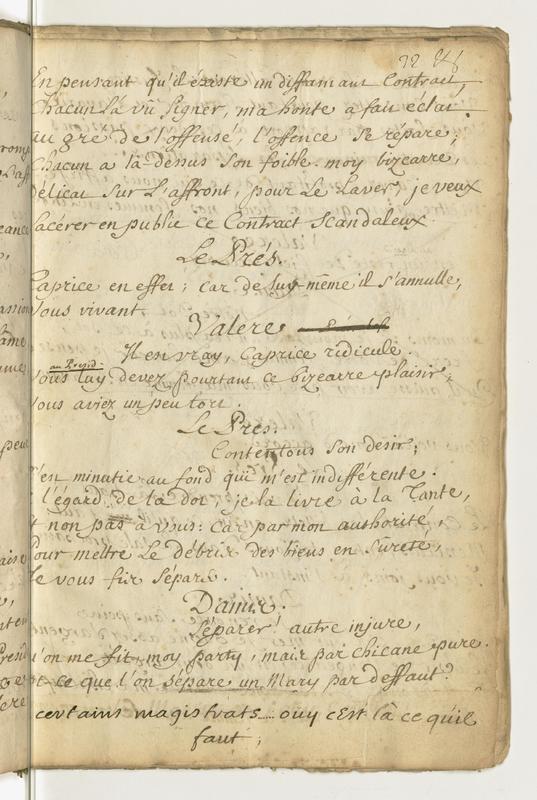 En pensant qu'il éxiste un diffamant Contract,
Chacun l'a vû signer, ma honte a fait éclat.
au gré de l'offensé, l'offence se répare;
Chacun a là-dessus son foible. moy bizarre,
délicat sur l'affront, pour le laver, je veux
lacérer en public ce Contract scandaleux.
Le Prés.
Caprice en effet; car de luy-même il s'annulle,
Vous vivant.
Valere
Il en vray, Caprice ridicule.
au Presid:
Vous luy devez pourtant ce bizearre plaisir;
vous aviez un peu tort.
Le Pres.
Contentons son desir;
C'en minutie au fond qui m'est indifférente.
l'égard de la dot, je la livre à la Tante,
Et non pas à vous: car par mon authorité,
Pour mettre le débris des biens en sûreté,
Je vous fis séparé.
Damis.
Séparer! autre injure,
qu'on me fit, moy party, mais par chicane pure.
est-ce que l'on sépare un Mary par deffaut?
certains magistrats.... ouy c'Est là ce qu'il
faut;